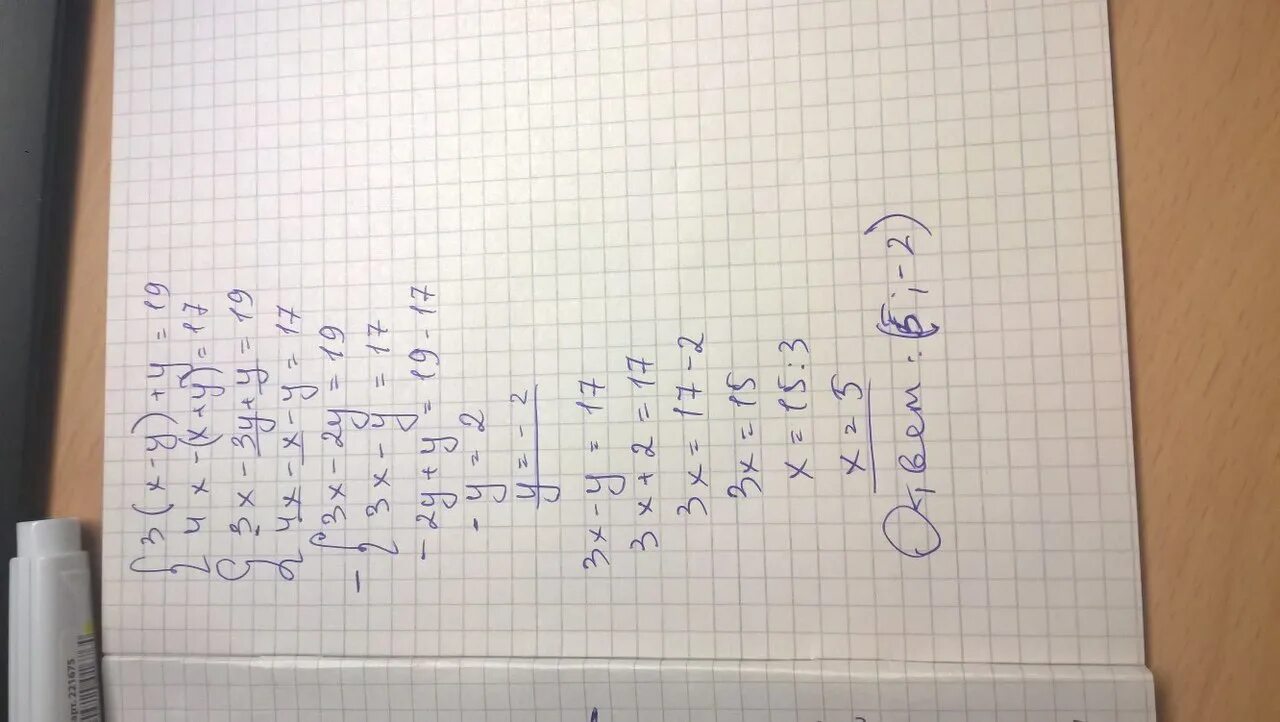 {3(x-y)+y=19
4x-(x+y)=17
{3x-3y+y=19
4x-x-y=17
-{3x-2y=19
3x-y=17
-2y+y=19-17
-y=2
y=-2
3x-y=17
3x+2=17
3x=17-2
3x=15
x=15:3
x=5
Ответ: (5;-2)
арт.221675